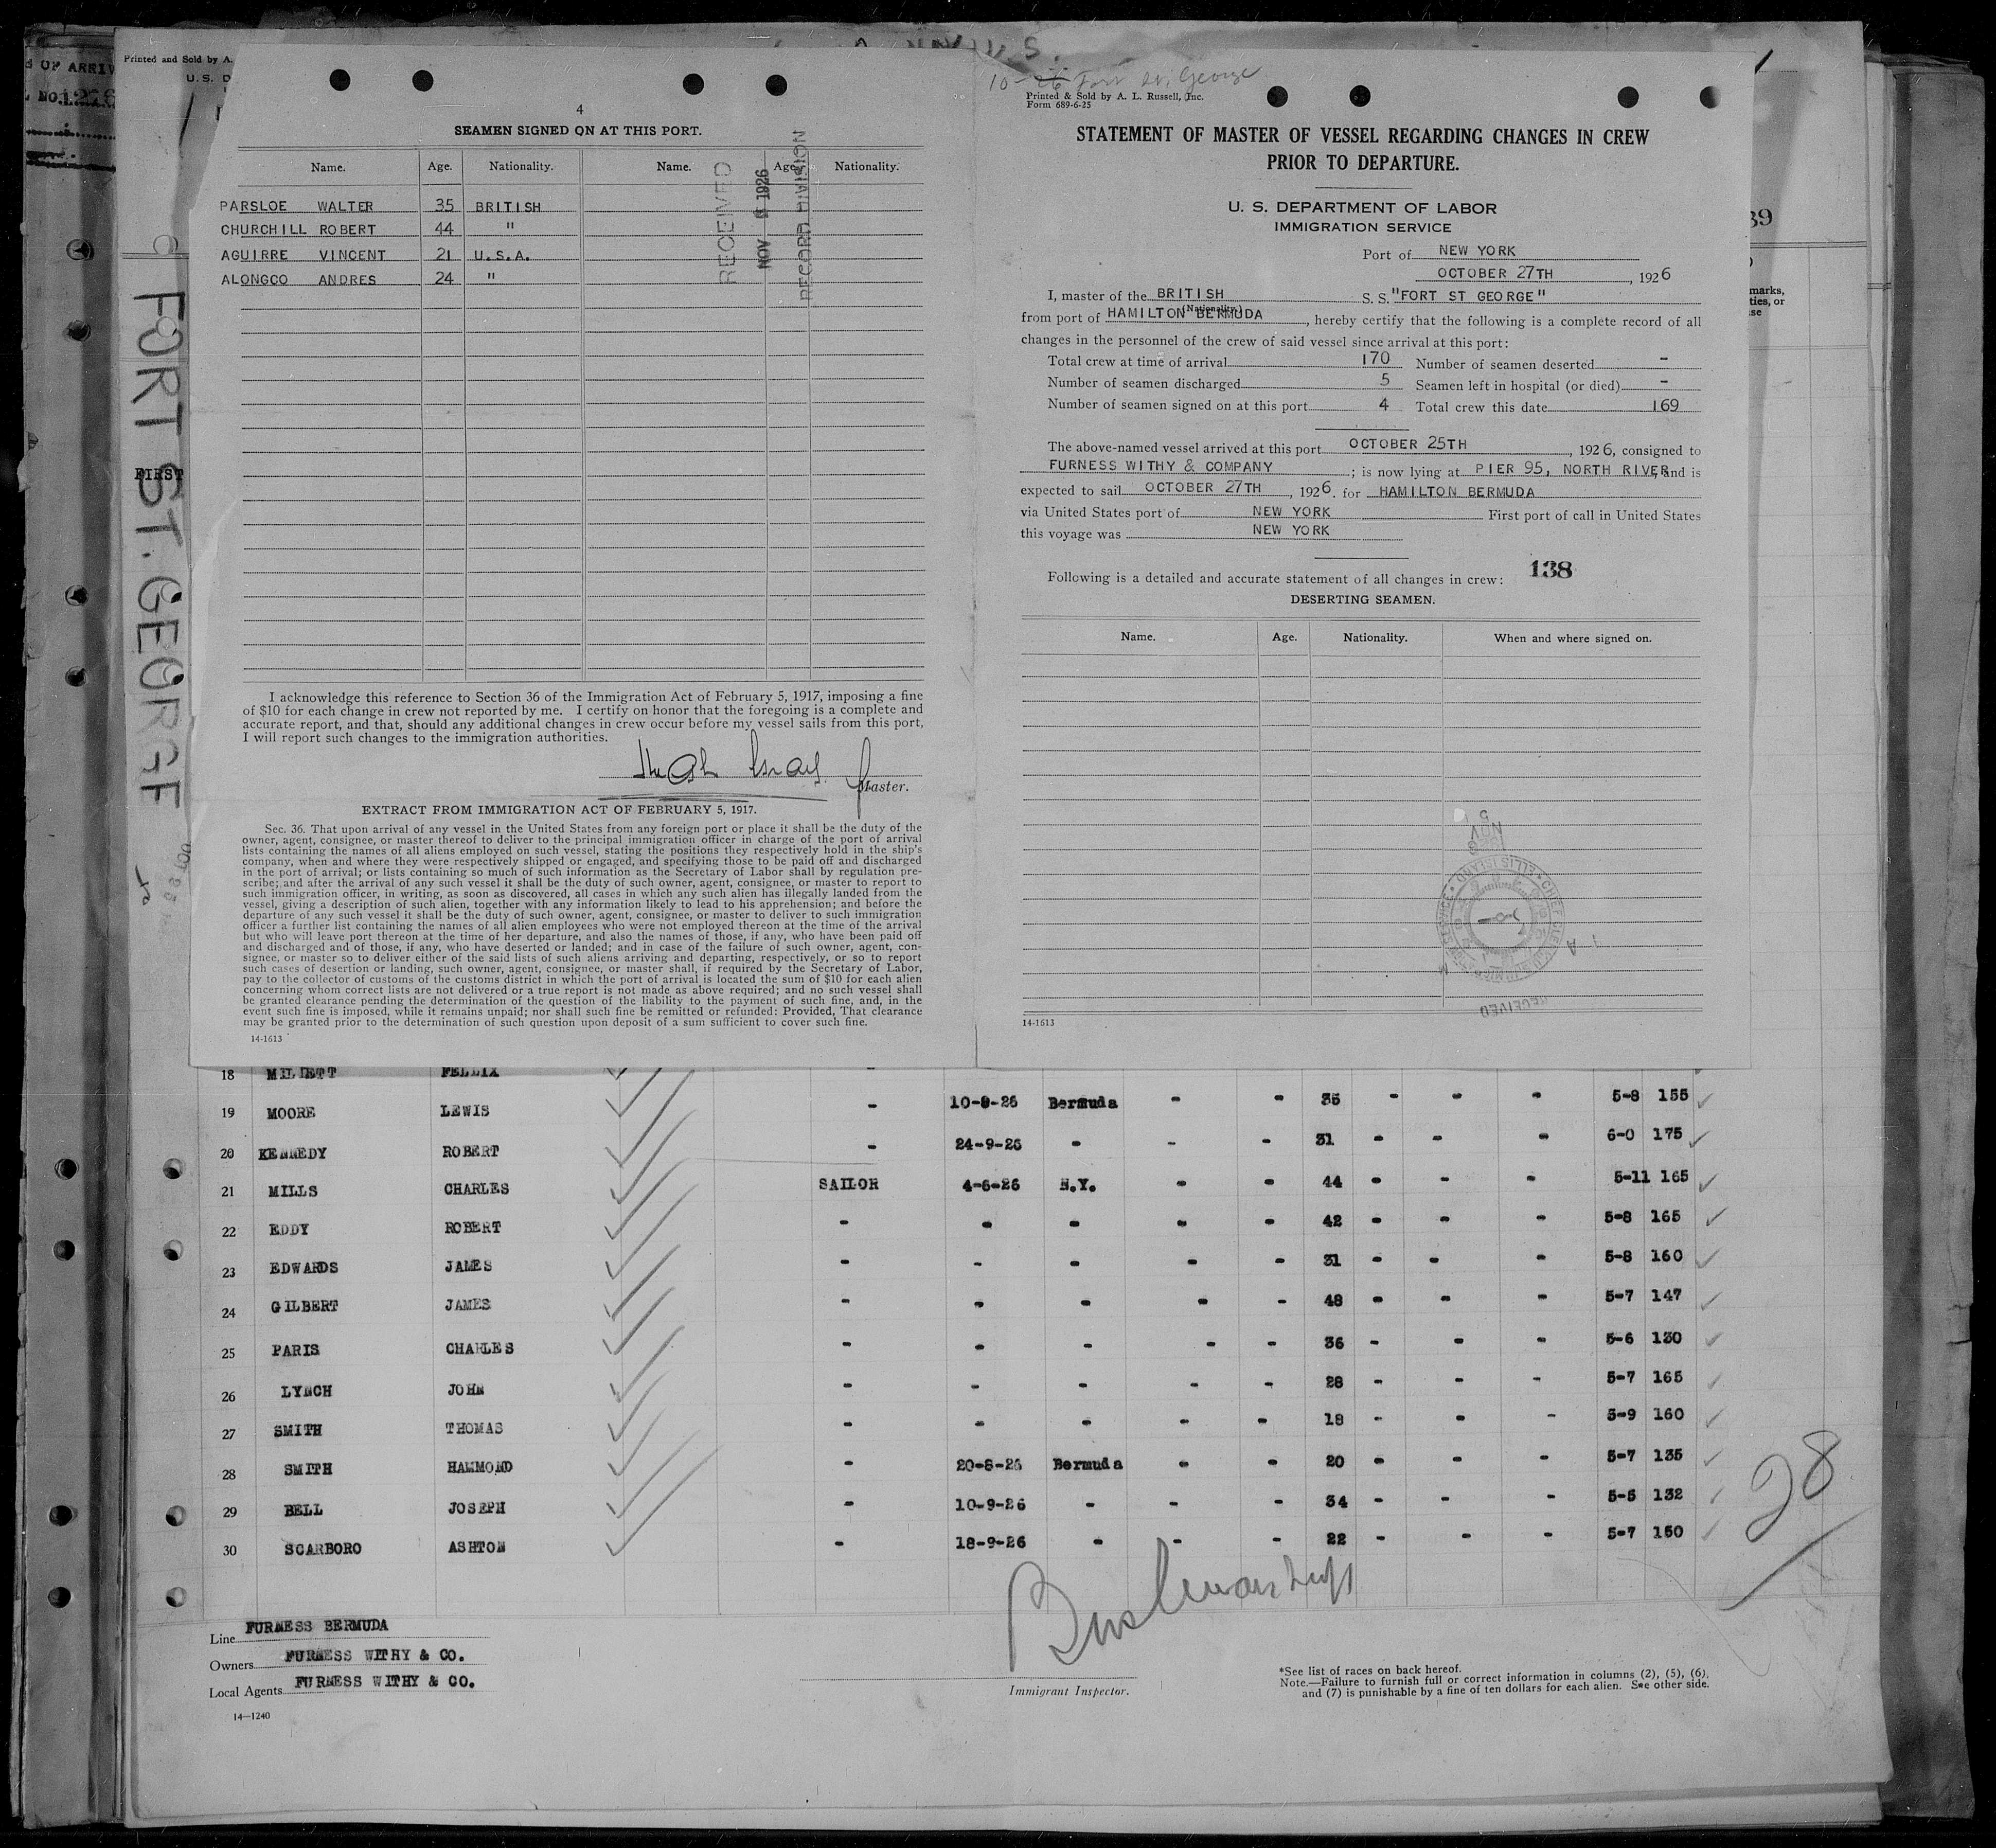 OF ARRIV
NO.
Printed and Sold by A.
U. S. D
FORT ST. GEORGE
FIRST
4
SEAMEN SIGNED ON AT THIS PORT.
Name. Age. Nationality. Name. Age. Nationality.
PARSLOE WALTER 35 BRITISH
CHURCHILL ROBERT 44 "
AGUIRRE VINCENT 21 U.S.A.
ALONGCO ANDRES 24 "
RECEIVED
NOV 1926
RECORD DIVISION
I acknowledge this reference to Section 36 of the Immigration Act of February 5, 1917, imposing a fine
of $10 for each change in crew not reported by me. I certify on honor that the foregoing is a complete and
accurate report, and that, should any additional changes in crew occur before my vessel sails from this port,
I will report such changes to the immigration authorities.
Master.
EXTRACT FROM IMMIGRATION ACT OF FEBRUARY 5, 1917.
Sec. 36. That upon arrival of any vessel in the United States from any foreign port or place it shall be the duty of the
owner, agent, consignee, or master thereof to deliver to the principal immigration officer in charge of the port of arrival
lists containing the names of all aliens employed on such vessel, stating the positions they respectively hold in the ship's
company, when and where they were respectively shipped or engaged, and specifying those to be paid off and discharged
in the port of arrival; or lists containing so much of such information as the Secretary of Labor shall by regulation pre-
scribe; and after the arrival of any such vessel it shall be the duty of such owner, agent, consignee, or master to report to
such immigration officer, in writing, as soon as discovered, all cases in which any such alien has illegally landed from the
vessel, giving a description of such alien, together with any information likely to lead to his apprehension; and before the
departure of any such vessel it shall be the duty of such owner, agent, consignee, or master to deliver to such immigration
officer a further list containing the names of all alien employees who were not employed thereon at the time of the arrival
but who will leave port thereon at the time of her departure, and also the names of those, if any, who have been paid off
and discharged and of those, if any, who have deserted or landed; and in case of the failure of such owner, agent, con-
signee, or master so to deliver either of the said lists of such aliens arriving and departing, respectively, or so to report
such cases of desertion or landing, such owner, agent, consignee, or master shall, if required by the Secretary of Labor,
pay to the collector of customs of the customs district in which the port of arrival is located the sum of $10 for each alien
concerning whom correct lists are not delivered or a true report is not made as above required; and no such vessel shall
be granted clearance pending the determination of the question of the liability to the payment of such fine, and, in the
event such fine is imposed, while it remains unpaid; nor shall such fine be remitted or refunded: Provided, That clearance
may be granted prior to the determination of such question upon deposit of a sum sufficient to cover such fine.
14-1613
10-26 Fort St. George
Printed & Sold by A. L. Russell, Inc.
Form 689-6-25
STATEMENT OF MASTER OF VESSEL REGARDING CHANGES IN CREW
PRIOR TO DEPARTURE.
U. S. DEPARTMENT OF LABOR
IMMIGRATION SERVICE
Port of NEW YORK
OCTOBER 27TH, 1926
I, master of the BRITISH S. S. "FORT ST GEORGE"
(Nationality)
from port of HAMILTON BERMUDA, hereby certify that the following is a complete record of all
changes in the personnel of the crew of said vessel since arrival at this port:
Total crew at time of arrival 170 Number of seamen deserted -
Number of seamen discharged 5 Seamen left in hospital (or died) -
Number of seamen signed on at this port 4 Total crew this date 169
The above-named vessel arrived at this port OCTOBER 25TH, 1926, consigned to
FURNESS WITHY & COMPANY; is now lying at PIER 95, NORTH RIVER, and is
expected to sail OCTOBER 27TH, 1926. for HAMILTON BERMUDA
via United States port of NEW YORK First port of call in United States
this voyage was NEW YORK
138
Following is a detailed and accurate statement of all changes in crew:
DESERTING SEAMEN.
Name. Age. Nationality. When and where signed on.
NOV 5
RECEIVED
14-1613
39
marks,
ties, or
se
18 MILLETT FELLIX
19 MOORE LEWIS - 10-8-26 Bermuda - - 35 - - - 5-8 155
20 KENNEDY ROBERT - 24-9-26 - - - 31 - - - 6-0 175
21 MILLS CHARLES SAILOR 4-6-26 N.Y. - - 44 - - - 5-11 165
22 EDDY ROBERT - - - - - 42 - - - 5-8 165
23 EDWARDS JAMES - - - - - 31 - - - 5-8 160
24 GILBERT JAMES - - - - - 48 - - - 5-7 147
25 PARIS CHARLES - - - - - 36 - - - 5-6 130
26 LYNCH JOHN - - - - - 28 - - - 5-7 165
27 SMITH THOMAS - - - - - 18 - - - 5-9 160
28 SMITH HAMMOND - 20-8-26 Bermuda - - 20 - - - 5-7 135
29 BELL JOSEPH - 10-9-26 - - - 34 - - - 5-5 132
30 SCARBORO ASHTON - 18-9-26 - - - 22 - - - 5-7 150
28
Line FURNESS BERMUDA
Owners FURNESS WITHY & CO.
Local Agents FURNESS WITHY & CO.
14—1240
Immigrant Inspector.
*See list of races on back hereof.
Note.—Failure to furnish full or correct information in columns (2), (5), (6),
and (7) is punishable by a fine of ten dollars for each alien. See other side.